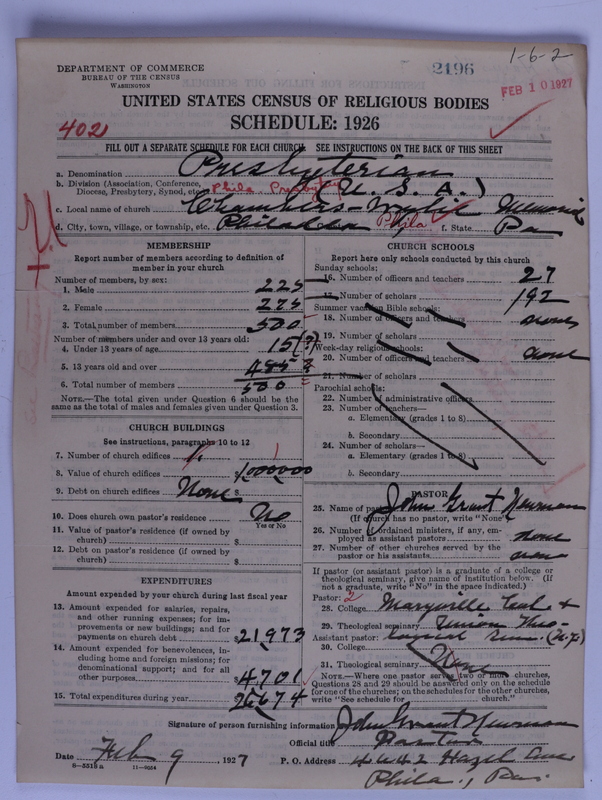 1-6-2
2196
FEB 10 1927
DEPARTMENT OF COMMERCE
BUREAU OF THE CENSUS
WASHINGTON
UNITED STATES CENSUS OF RELIGIOUS BODIES
SCHEDULE: 1926
402
FILL OUT A SEPARATE SCHEDULE FOR EACH CHURCH. SEE INSTRUCTIONS ON THE BACK OF THIS SHEET
a. Denomination Presbyterian
b. Division (Association, Conference, Diocese, Presbytery, Synod, etc.) Phila Presbytery (U. S. A.)
c. Local name of church Chambers-Wylie Memorial
d. City, town, village, or township, etc. Philadelphia Phila f. State Pa
MEMBERSHIP
Report number of members according to definition of
member in your church
Number of members, by sex:
1. Male 225
2. Female 275
3. Total number of members 500
Number of members under and over 13 years old:
4. Under 13 years of age 15 (?)
5. 13 years old and over 485 ?
6. Total number of members 500
NOTE.—The total given under Question 6 should be the
same as the total of males and females given under Question 3.
CHURCH BUILDINGS
See instructions, paragraphs 10 to 12
7. Number of church edifices 1
8. Value of church edifices $1,000,000
9. Debt on church edifices None $
10. Does church own pastor's residence No
Yes or No
11. Value of pastor's residence (if owned by
church) $
12. Debt on pastor's residence (if owned by
church) $
EXPENDITURES
Amount expended by your church during last fiscal year
13. Amount expended for salaries, repairs,
and other running expenses; for im-
provements or new buildings; and for
payments on church debt $21973
14. Amount expended for benevolences, in-
cluding home and foreign missions; for
denominational support; and for all
other purposes $4701
15. Total expenditures during year 26674
CHURCH SCHOOLS
Report here only schools conducted by this church
Sunday schools:
16. Number of officers and teachers 27
17. Number of scholars 192
Summer vacation Bible schools:
18. Number of officers and teachers none
19. Number of scholars
Week-day religious schools:
20. Number of officers and teachers none
21. Number of scholars
Parochial schools:
22. Number of administrative officers
23. Number of teachers—
a. Elementary (grades 1 to 8)
b. Secondary
24. Number of scholars—
a. Elementary (grades 1 to 8)
b. Secondary
PASTOR
25. Name of pastor John Grant Newman
(If church has no pastor, write "None")
26. Number of ordained ministers, if any, em-
ployed as assistant pastors none
27. Number of other churches served by the
pastor or his assistants none
If pastor (or assistant pastor) is a graduate of a college or
theological seminary, give name of institution below. (If
not a graduate, write "No" in the space indicated.)
Pastor: 2
28. College Maryville Coll +
29. Theological seminary Union Theo-
Assistant pastor: logical Sem. (N.Y.)
30. College
31. Theological seminary None
NOTE.—Where one pastor serves two or more churches,
Questions 28 and 29 should be answered only on the schedule
for one of the churches; on the schedules for the other churches,
write "See schedule for church."
Signature of person furnishing information John Grant Newman
Official title Pastor
Date Feb 9 1927 P. O. Address 4642 Hazel Ave
8-5518a 11-9554
Phila., Pa.